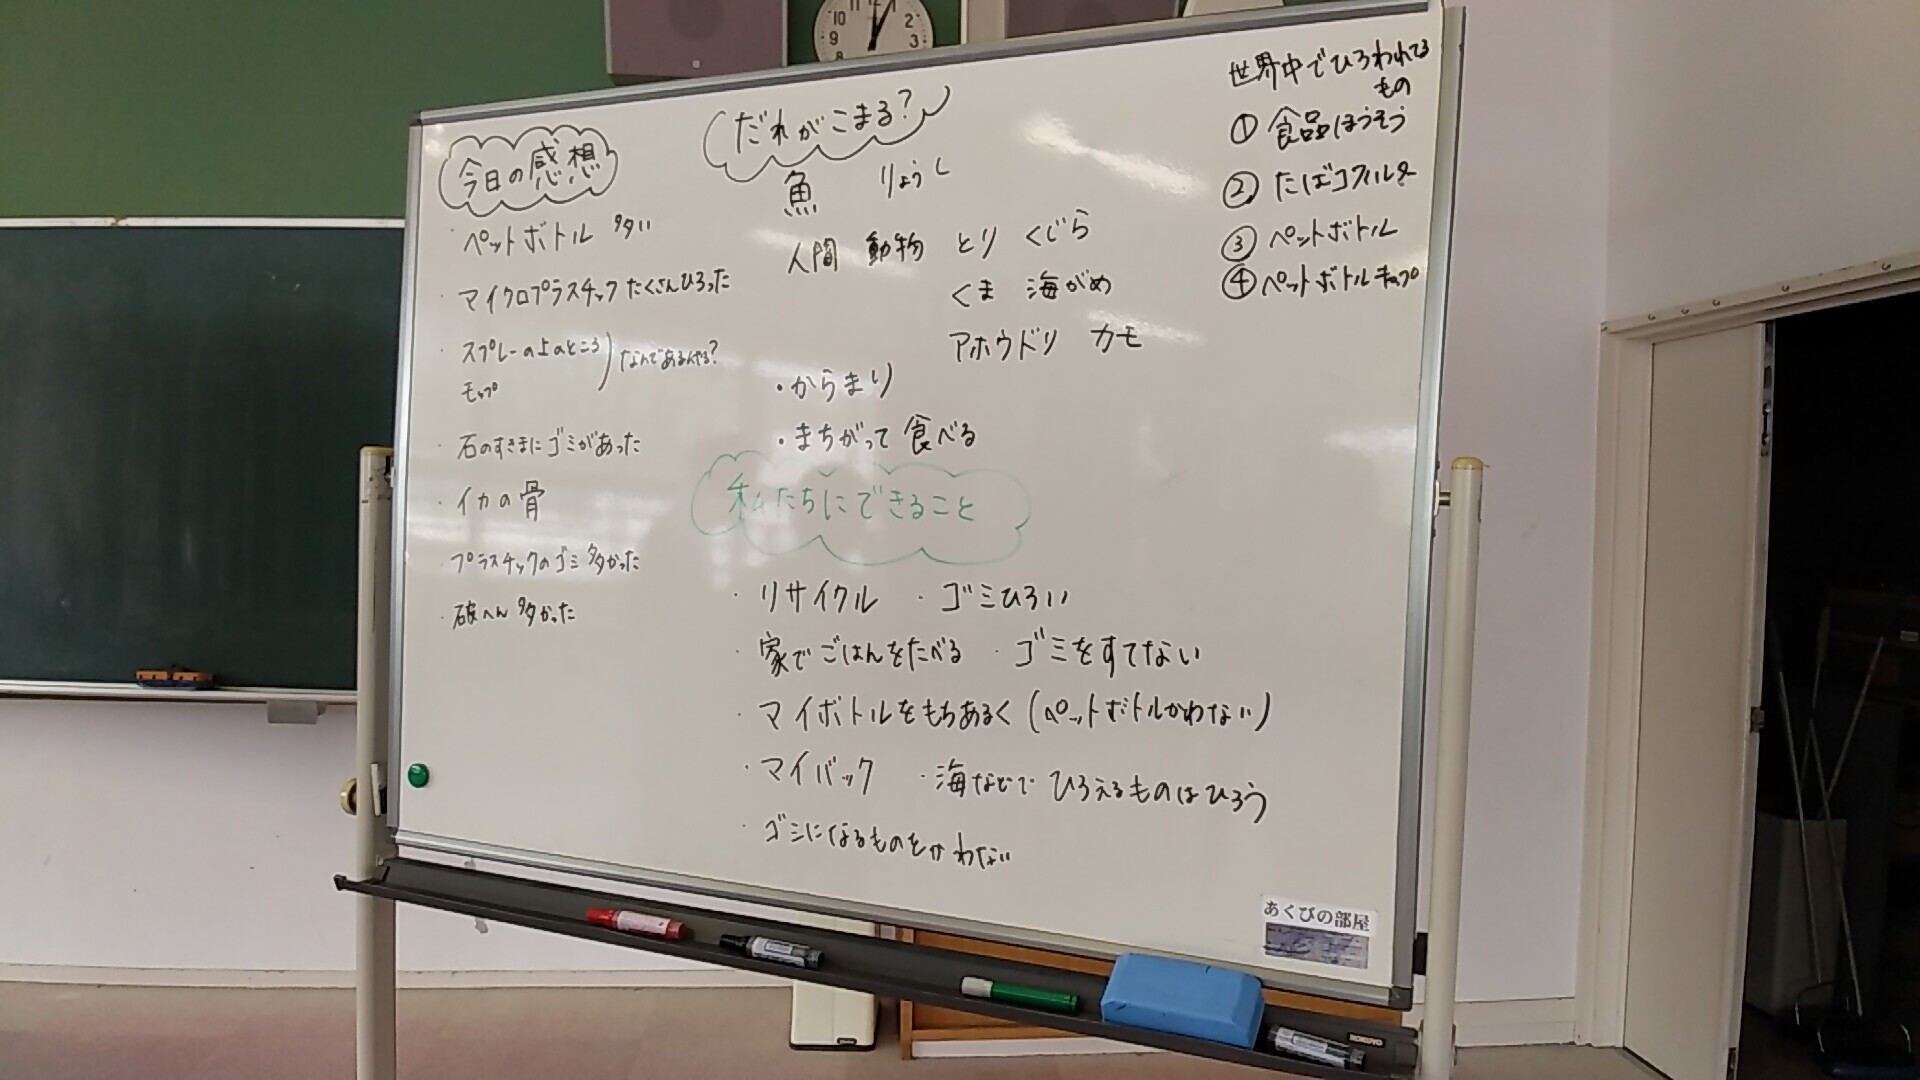 今日の感想
・ペットボトル 多い
・マイクロプラスチックたくさんひろった
・スプレーの上のところ
モップ
なんであるんやろ?
・石のすきまにゴミがあった
・イカの骨
・プラスチックのゴミ多かった
・破へん多かった
だれがこまる?
魚 りょうし
人間 動物 とり くじら
くま 海がめ
アホウドリ カモ
・からまり
・まちがって食べる
私たちにできること
・リサイクル ・ゴミひろい
・家でごはんをたべる ・ゴミをすてない
・マイボトルをもちあるく(ペットボトルかわない)
・マイバック ・海などでひろえるものはひろう
・ゴミになるものをかわない
世界中でひろわれてる
もの
① 食品ほうそう
② たばコフィルター
③ ペットボトル
④ ペットボトルキャップ
あくびの部屋
KOKUYO
10 11 1 2
9 3
8